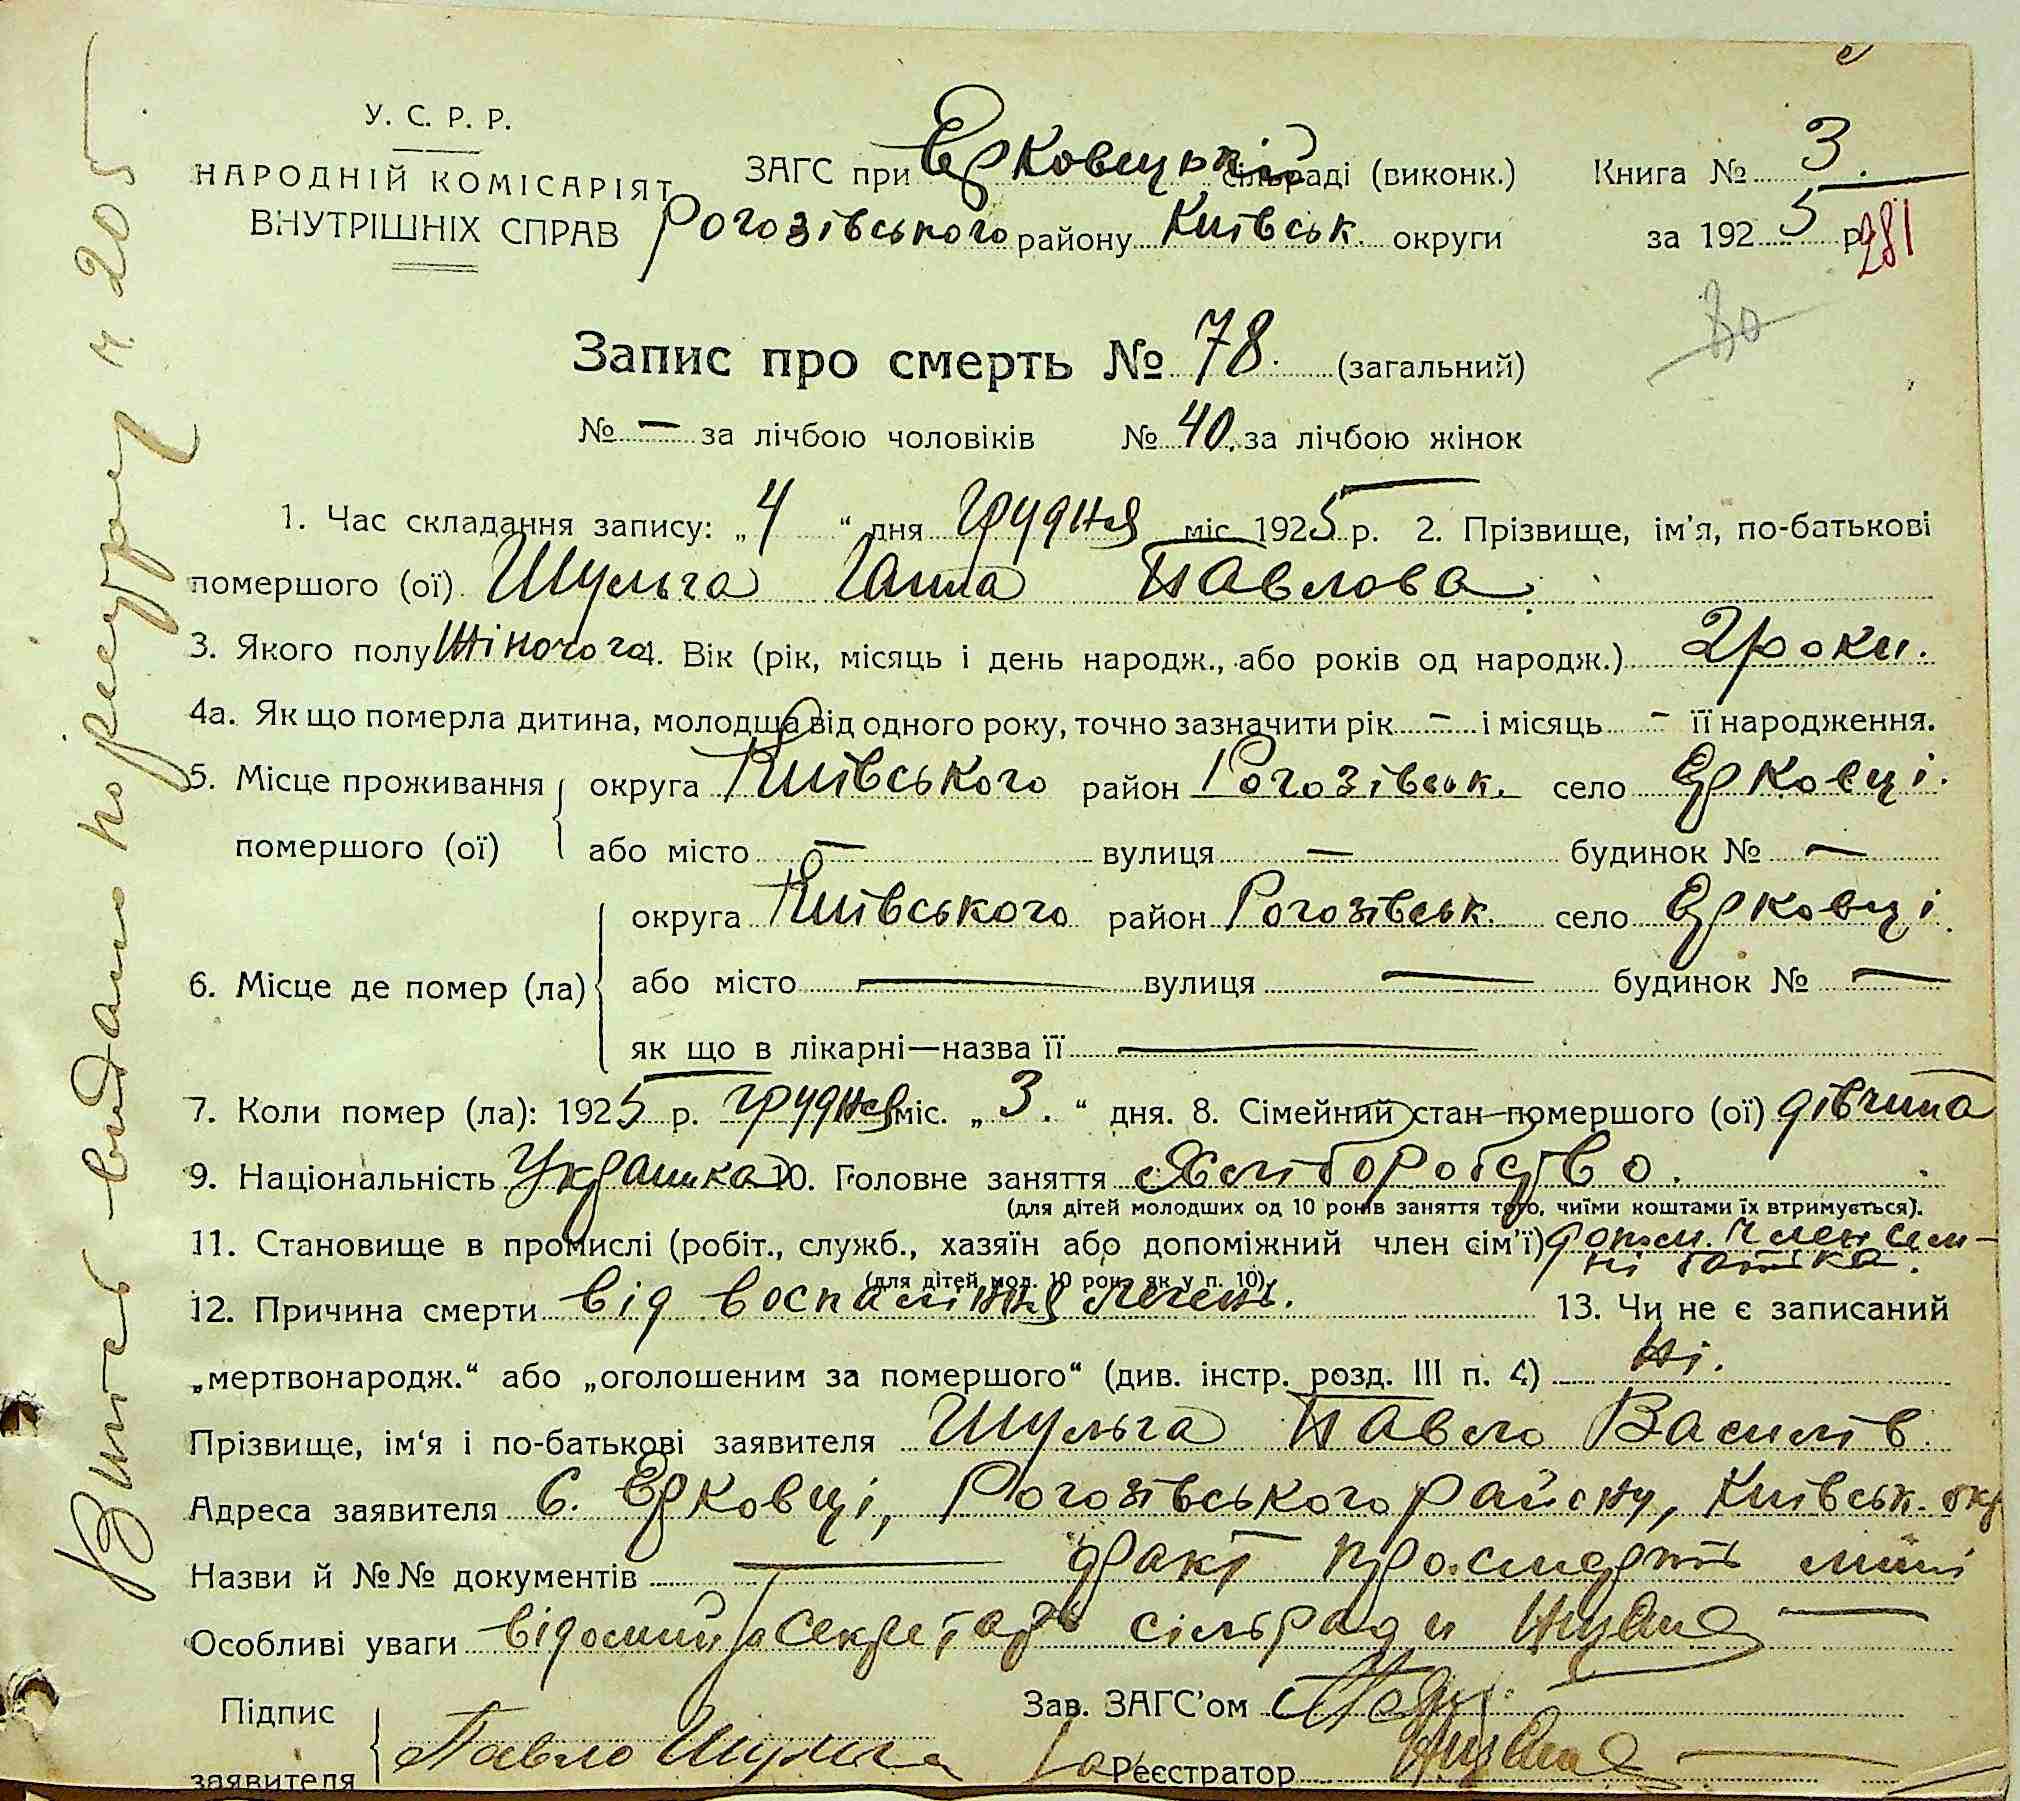 У. С. Р. Р.
НАРОДНІЙ КОМІСАРІЯТ
ВНУТРІШНІХ СПРАВ
ЗАГС при Єрковецькій сільраді (виконк.)
Рогозівського району Київськ. округи
Книга № 3.
за 1925 р.
281
80
Запис про смерть № 78. (загальний)
№ — за лічбою чоловіків № 40. за лічбою жінок
1. Час складання запису: „4“ дня грудня міс 1925 р. 2. Прізвище, ім'я, по-батькові
помершого (ої). Шульга Ганна Павлова
3. Якого полу Жіночого 4. Вік (рік, місяць і день народж., або років од народж.) 2 роки.
4а. Як що померла дитина, молодща від одного року, точно зазначити рік – і місяць – її народження.
5. Місце проживання помершого (ої) округа Київського район Рогозівськ. село Єрковці.
або місто — вулиця — будинок № —
6. Місце де помер (ла) округа Київського район Рогозівськ. село Єрковці.
або місто — вулиця — будинок № —
як що в лікарні—назва її —
7. Коли помер (ла): 1925 р. грудня міс. „3.“ дня. 8. Сімейний стан помершого (ої) дівчина
9. Національність Українка 10. Головне заняття Хліборобство.
(для дітей молодших од 10 років заняття того, чиїми коштами їх втримується).
11. Становище в промислі (робіт., служб., хазяїн або допоміжний член сім'ї) допом. член сім-
(для дітей мол. 10 рок. як у п. 10)
12. Причина смерти від воспаління легень. 13. Чи не є записаний
„мертвонародж.“ або „оголошеним за помершого“ (див. інстр. розд. III п. 4) Ні.
Прізвище, ім'я і по-батькові заявителя Шульга Павло Василів
Адреса заявителя с. Єрковці, Рогозівського району, Київськ. окр
Назви й №№ документів — факт про смерть мині
Особливі уваги відомий Секретарь сільради
Підпис
заявителя Павло Шульга
Зав. ЗАГС'ом
Реєстратор
Витяг видано по реєстру ч 205